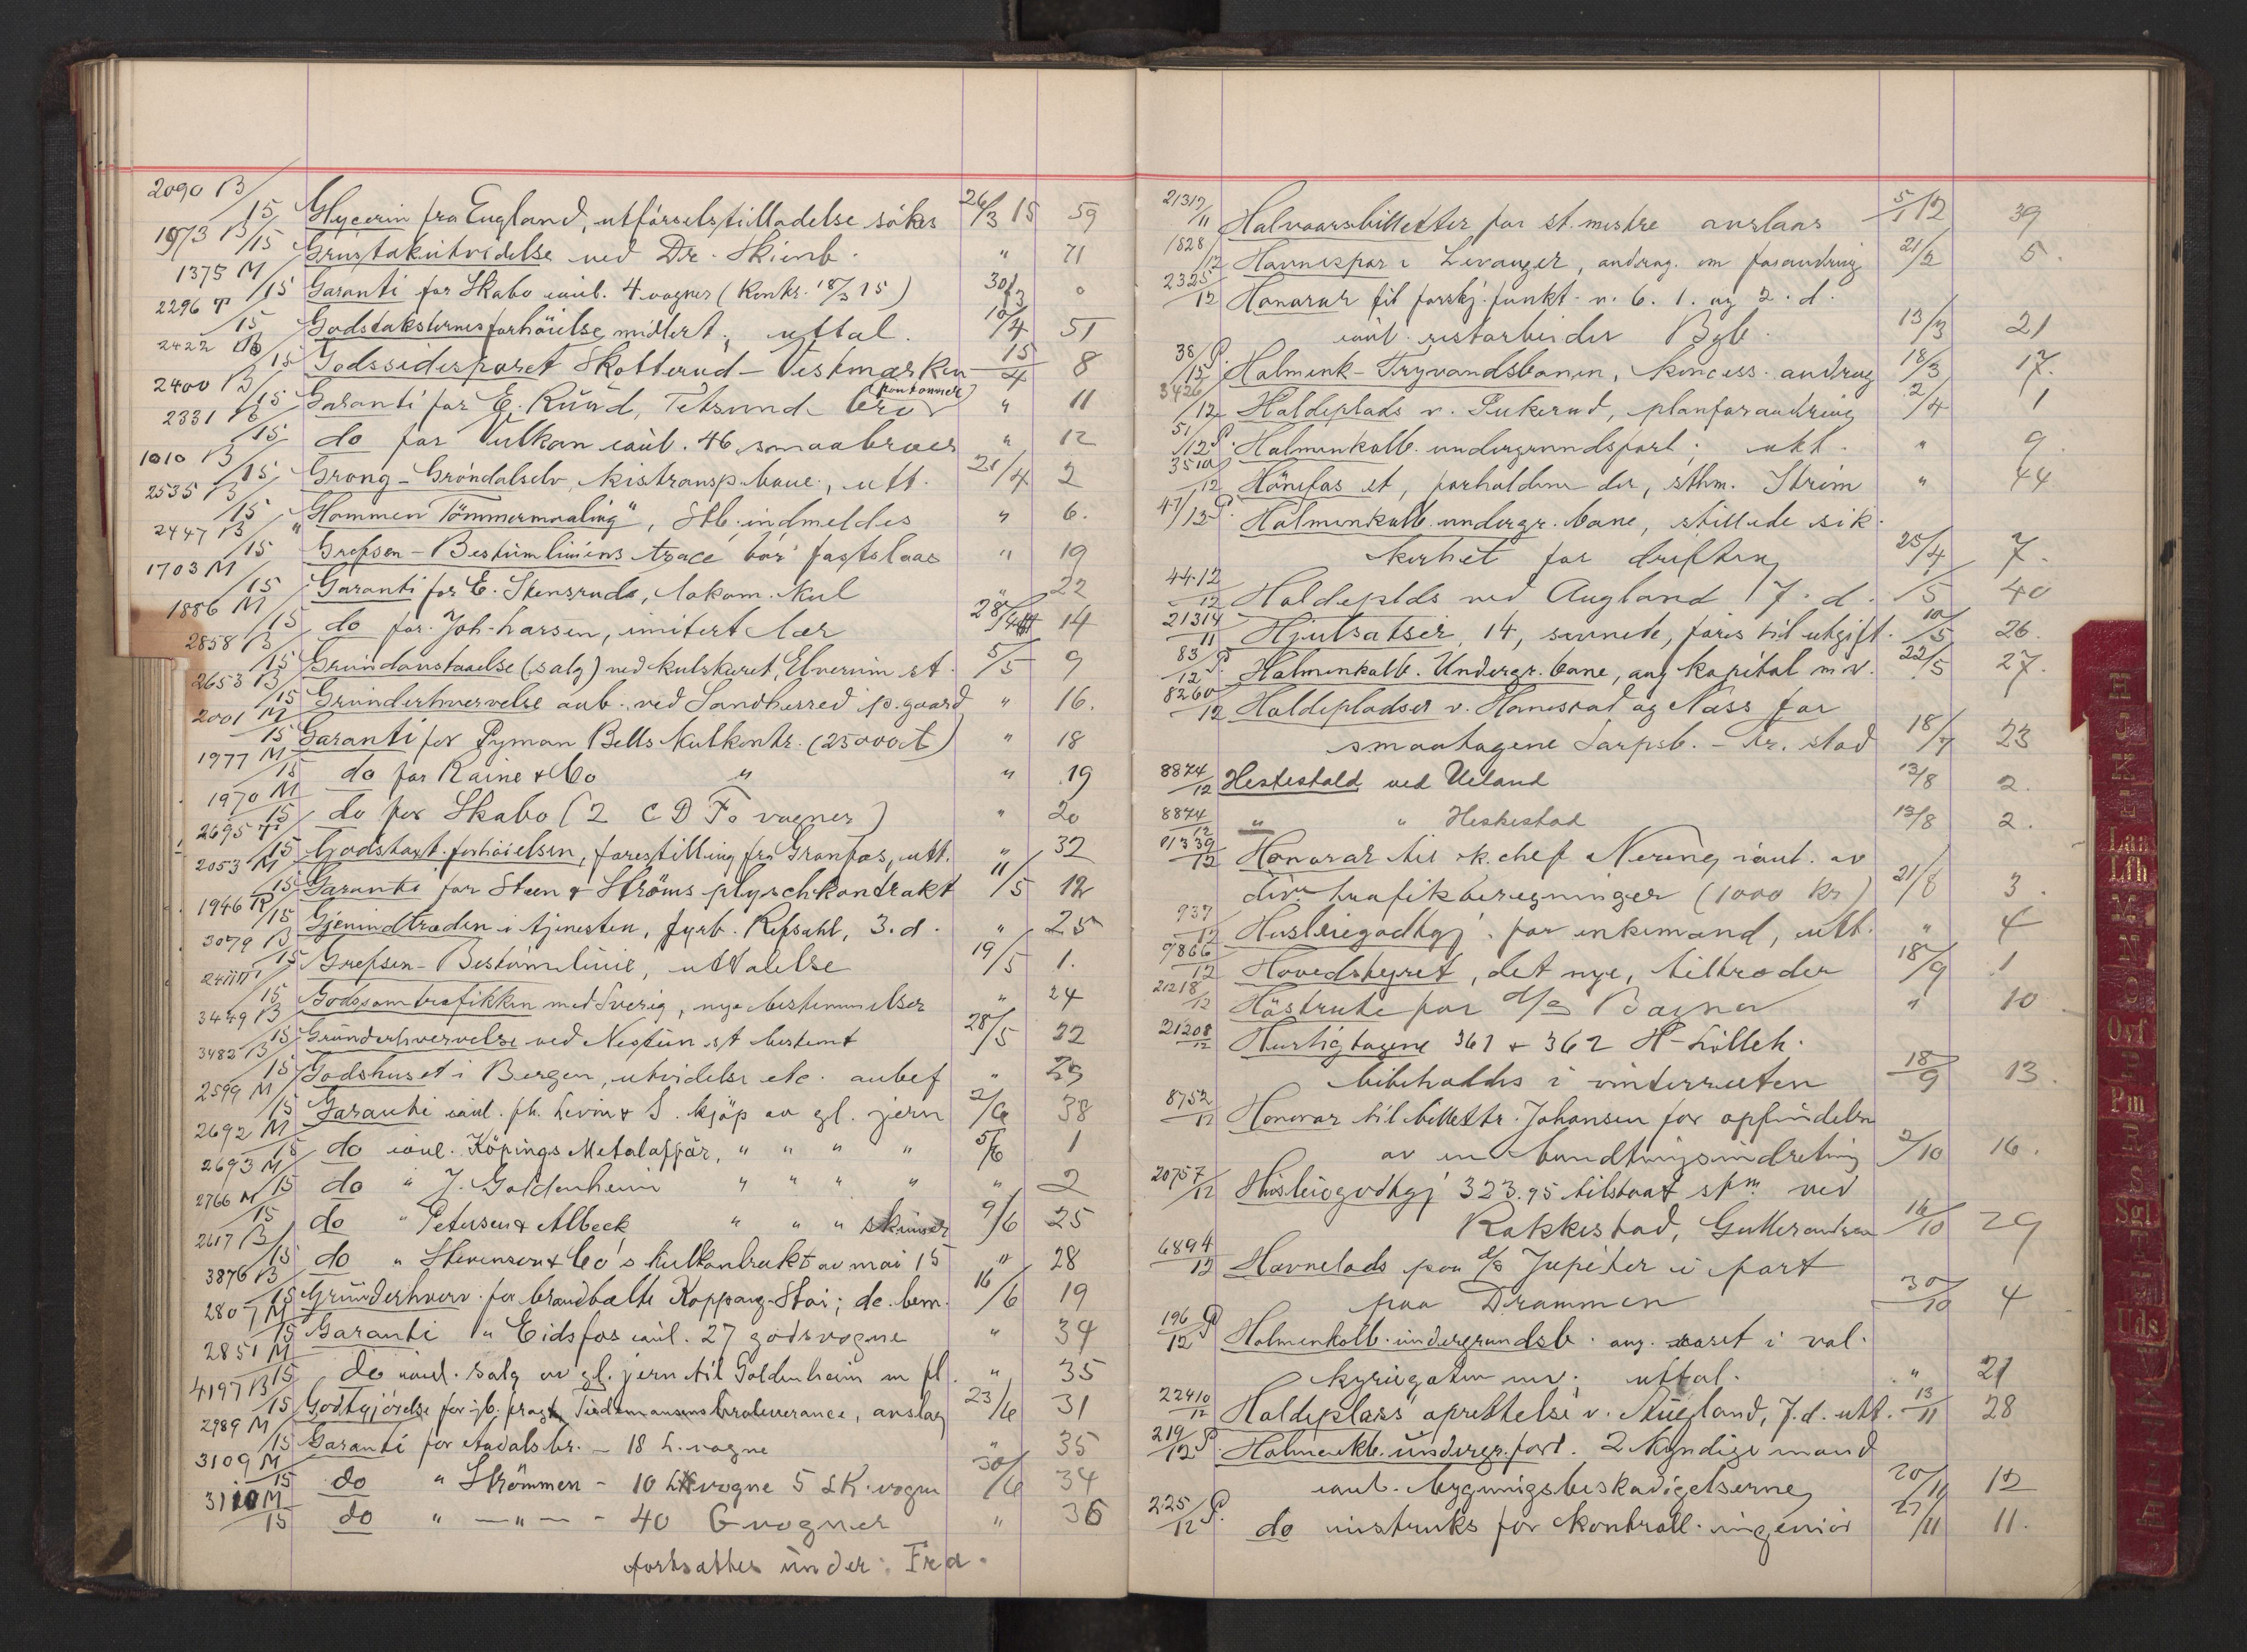 2090 B/15 Glycerin fra England, utförselstilladelse sökes 26/3 15 59
1073 B/15 Grustakutvidelse ved Dr. Skienb. " 71
1375 M/15 Garanti for Skabo 4 vogner (Kontr. 18/3 15) 30/3 0
2296 T/15 Godstaksternes forhöielse midlert. uttal. 10/4 51
2422 B/15 Godssidesporet Skotterud - Vestmarken 15/4 8
2400 B/15 Garanti for E. Ruud, Fetsund bro (pontonner) " 11
2331 B/15 do for Vulkan 46 smaabroer " 12
1010 B/15 Grong - Gröndalselv, kistransp. bane, utt. 21/4 2
2535 B/15 "Glommen Tömmermaaling", Stb. indmeldes " 6.
2447 B/15 Grefsen - Bestumliniens trace bör fastslaaes " 19
1703 M/15 Garanti for E. Stensruds, lokom. kul " 22
1886 M/15 do for Joh. Larsen, imitert lær 28/4 14
2858 B/15 Grundavstaaelse (salg) ved kulskuret, Elverum st. 5/5 9
2653 B/15 Grunderhvervelse anb. ved Sandherred p. gaard " 16.
2001 M/15 Garanti for Pyman Bells kulkontr. (25000 t) " 18
1977 M/15 do for Raine & Co " " 19
1970 M/15 do for Skabo (2 C D Fo vogner) " 20
2695 T/15 Godstaxt. forhöielsen, forestilling fra Granfos, utt. " 32
2053 M/15 Garanti for Steen & Ströms plyschkontrakt 11/5 12
1946 R/15 Gjenindtræden i tjenesten, fyrb. Refsahl, 3. d. " 25
3079 B/15 Grefsen - Bestumlinie, uttalelse 19/5 1.
15 Godssamtrafikken med Sverig, nye bestemmelser " 24
3449 B/15 Grunderhvervelse ved Nestun st bestemt 28/5 22
3482 B/15 Godshuset i Bergen, utvidelse etc. anbef " 29
2599 M/15 Garanti ph. Levin & S. kjöp av gl. jern 2/6 38
2692 M/15 do Köpings Metalaffär, " " " " 5/6 1
2693 M/15 do " J. Goldenheim " " " " " 2
2766 M/15 do " Petersen & Albeck " " " skinner 9/6 25
2617 B/15 do " Stevenson & Co's kulkontrakt av mai 15 " 28
3876 B/15 Grunderhverv. for brandbælte Koppang - Stai; de. bem. 16/6 19
2807 M/15 Garanti " Eidsfos 27 godsvogne " 34
2851 M/15 do salg av gl. jern til Goldenheim m fl. " 35
4197 B/15 Godtgjörelse for jb. fragt Tiedemansens broleverance, avslag 23/6 31
2989 M/15 Garanti for Aadalsbr. - 18 L. vogne " 35
3109 M/15 do " Strömmen - 10 L vogne 5 LK. vogne 30/6 34
3110 M/15 do " — " — - 40 G vogner " 36
fortsættes under: Fra.
21317/11 Halvaarsbilletter for st. mestre avslaaes 5/1 12 39
1828/12 Havnespor i Levanger, andrag. om forandring 21/2 5.
2325/12 Honorar til forskj. funkt. v. 6. 1. og 2. d.
restarbeider Bgb. 13/3 21
38/12 P. Holmenk - Tryvandsbanen, koncess. andrag 18/3 17.
3426/12 Holdeplads v. Sukerud, planforandring 2/4 1
51/12 P. Holmenkolb. undergrundsport; utt. " 9.
3510/12 Hönefos st, forholdene der, sthm. Ström " 44
47/12 P. Holmenkolb. undergr. bane, stillede sik-
kerhet for driften 25/4 7.
44.12/12 Holdeplds ved Augland 7. d. 1/5 40
21314/11 Hjulsatser, 14, savnede, föres til utgift. 10/5 26.
83/12 P. Holmenkolb. Undergr. bane, ang kapital m.v. 22/5 27.
8260/12 Holdepladser v. Hannestad og Næss for
smaatogene Sarpsb. - Fr. stad 18/7 23
8874/12 Hestestald ved Ueland 13/8 2.
8874/12 " " Heskestad 13/8 2.
01339/12 Honorar til k. chef Nering av
div. trafikberegninger (1000 Kr) 21/8 3.
937/12 Husleiegodtgj. for enkemænd, utt. " 4
9866/12 Hovedstyret, det nye, tiltræder 18/9 1
21218/12 Höstrute for D/S Bagner " 10
21208/12 Hurtigtogene 361 & 362 H-Lilleh.
bibeholdes i vinterruten 18/9 13.
8752/12 Honorar til billettr. Johansen for opfindelse
av en bundtningsindretning 2/10 16.
20757/12 Husleiegodtgj 323.95 tilstaaet stm. ved
Rakkestad, Guttormsen 16/10 29
6894/12 Havnelods paa D/S Jupiter i fart
paa Drammen 30/10 4
196/12 P Holmenkolb. undergrundsb. ang. raset i Val-
kyriegaten m.v. uttal. " 21
22410/12 Holdeplass oprettelse v. Augland, 7. d. utt. 13/11 28
219/12 P. Holmenkb. undergr. fort. 2 kyndige mænd
bygningsbeskadigelserne 20/11 12
225/12 P. do instruks for kontroll. ingeniör 27/11 11.
H
J
K
L
Lan
Lfh
M
N
O
Ovf
P
Pm
R
S
Sgl
T
U
Uds